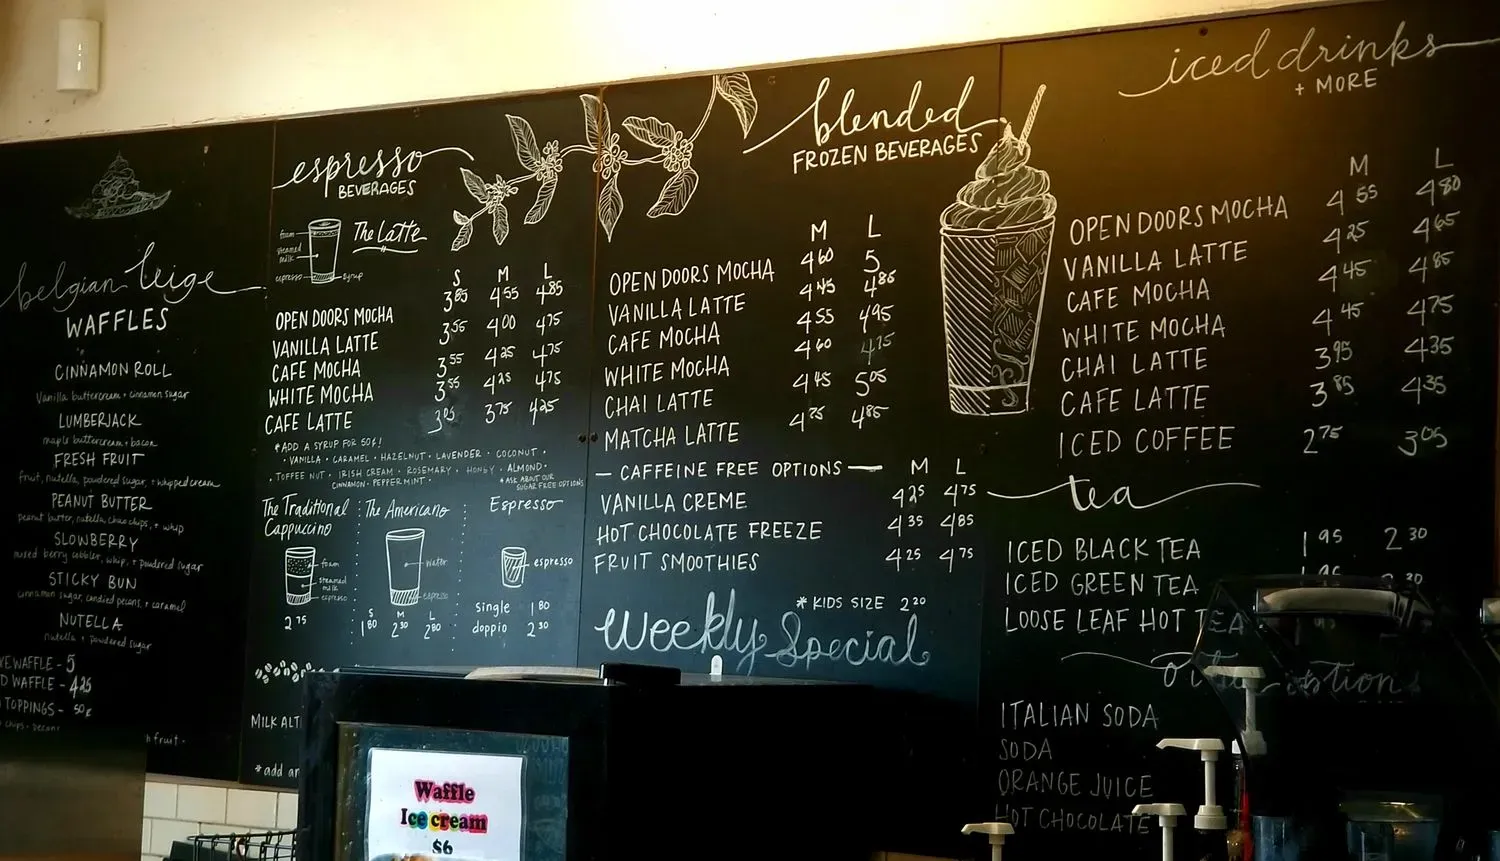 belgian liege
WAFFLES
CINNAMON ROLL
Vanilla buttercream + cinnamon sugar
LUMBERJACK
maple buttercream + bacon
FRESH FRUIT
fruit, nutella, powdered sugar, + whipped cream
PEANUT BUTTER
peanut butter, nutella, choc chips, + whip
SLOWBERRY
mixed berry cobbler, whip, + powdered sugar
STICKY BUN
cinnamon sugar, candied pecans, + caramel
NUTELLA
nutella + powdered sugar
WAFFLE - 5
WAFFLE - 4.25
TOPPINGS - 50¢
chips - pecans
fruit -
espresso
BEVERAGES
The Latte
foam
steamed milk
espresso
syrup
S M L
OPEN DOORS MOCHA 3 85 4 55 4 85
VANILLA LATTE 3 55 4 00 4 75
CAFE MOCHA 3 55 4 25 4 75
WHITE MOCHA 3 55 4 25 4 75
CAFE LATTE 3 75 4 25
*ADD A SYRUP FOR 50¢!
• VANILLA • CARAMEL • HAZELNUT • LAVENDER • COCONUT •
• TOFFEE NUT • IRISH CREAM • ROSEMARY • HONEY • ALMOND •
CINNAMON • PEPPERMINT •
*ASK ABOUT OUR
SUGAR FREE OPTIONS
The Traditional
Cappuccino
foam
steamed milk
espresso
2 75
The Americano
water
espresso
S M L
1 80 2 30 2 80
Espresso
espresso
single 1 80
doppio 2 30
MILK ALT
*add
blended
FROZEN BEVERAGES
M L
OPEN DOORS MOCHA 4 60 5
VANILLA LATTE 4 45 4 86
CAFE MOCHA 4 55 4 95
WHITE MOCHA 4 60 4 75
CHAI LATTE 4 45 5 05
MATCHA LATTE 4 75 4 85
— CAFFEINE FREE OPTIONS — M L
VANILLA CREME 4 25 4 75
HOT CHOCOLATE FREEZE 4 35 4 85
FRUIT SMOOTHIES 4 25 4 75
* KIDS SIZE 2 20
Weekly Special
iced drinks
+ MORE
M L
OPEN DOORS MOCHA 4 55 4 80
VANILLA LATTE 4 25 4 65
CAFE MOCHA 4 45 4 85
WHITE MOCHA 4 45 4 75
CHAI LATTE 3 95 4 35
CAFE LATTE 3 85 4 35
ICED COFFEE 2 75 3 05
tea
ICED BLACK TEA 1 95 2 30
ICED GREEN TEA
LOOSE LEAF HOT TEA
ITALIAN SODA
SODA
ORANGE JUICE
HOT CHOCOLATE
Waffle
Ice cream
$6